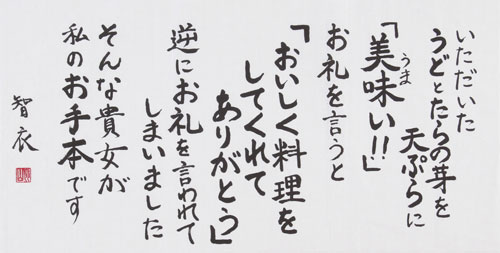 いただいた
うどとたらの芽を
天ぷらに
「美味い!!」
うま
お礼を言うと
「おいしく料理を
してくれて
ありがとう」
逆にお礼を言われて
しまいました
そんな貴女が
私のお手本です
智衣